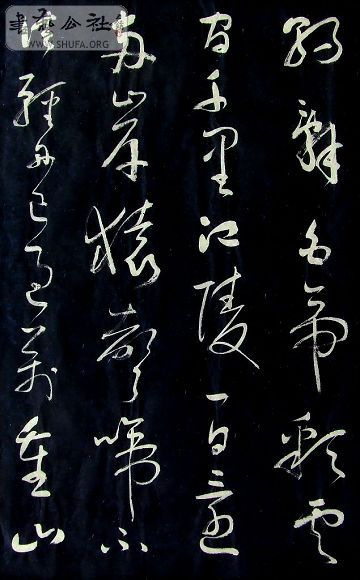 書法公社
WWW.SHUFA.ORG
朝辭白帝彩雲
間千里江陵一日還
兩岸猿聲啼不
住輕舟已過萬重山